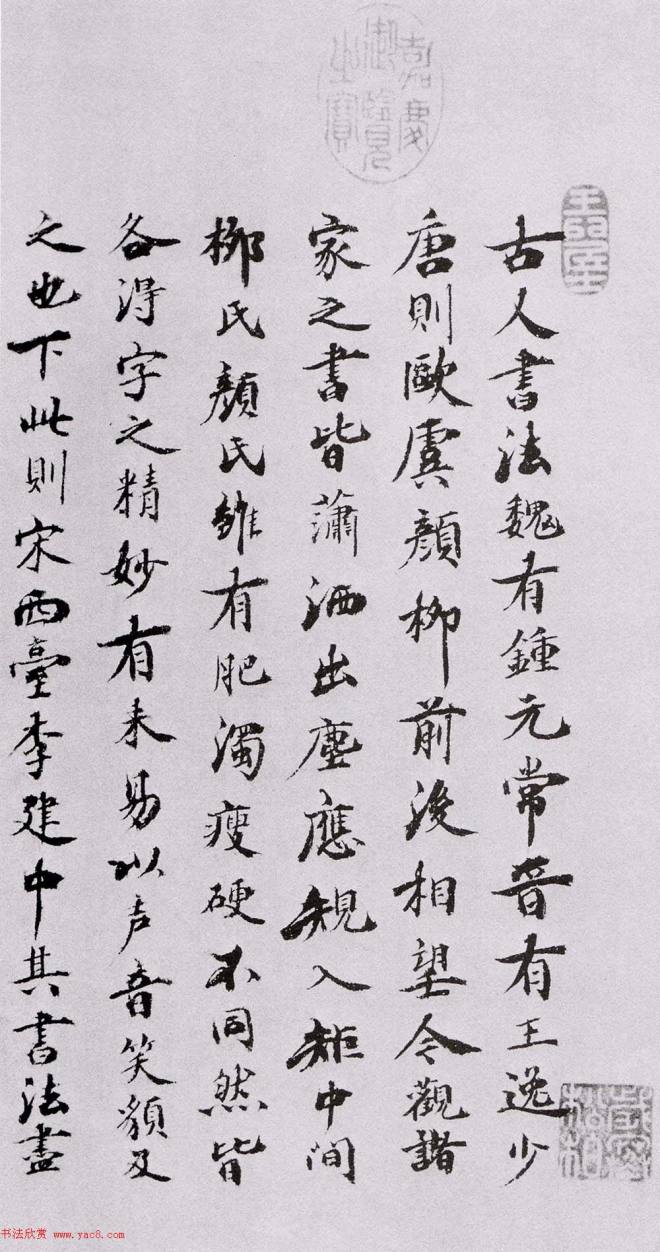 嘉慶御覽之寶
古人書法魏有鍾元常晉有王逸少
唐則歐虞顏柳前後相望今觀諸
家之書皆蕭洒出塵應規入矩中間
柳氏顏氏雖有肥濁瘦硬不同然皆
各得字之精妙有未易以声音笑貌及
之也下此則宋西臺李建中其書法盡
书法欣赏 www.yac8.com